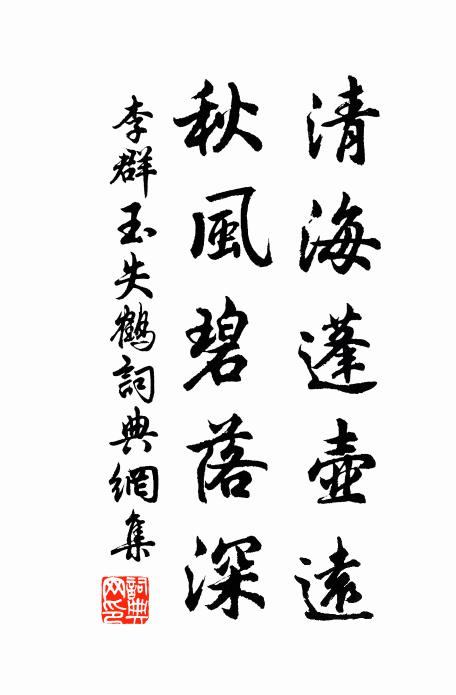 清海蓬壺遠
秋風碧落深
李群玉失鶴詞典網集
詞典網印